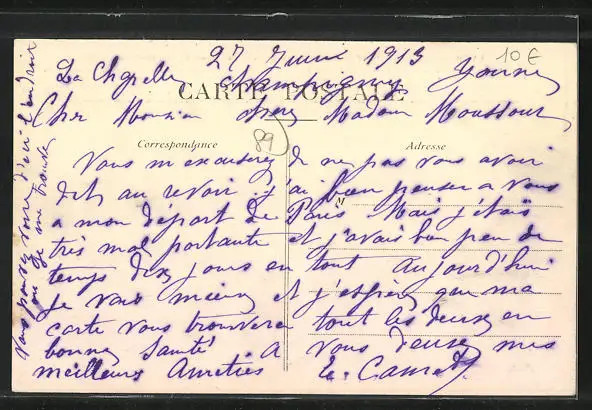 27 Juin 1913
10 €
La Chapelle Champigny Yonne
CARTE POSTALE
Cher Monsieur Chere Madame
89
Correspondance
Adresse
Vous m excuserez de ne pas vous avoir
dit au revoir. j'ai bien penser a vous
M
a mon départ de Paris Mais j'étais
très mal portante et j'avais bien peu de
temps dix jours en tout aujourd'hui
je vais mieux et j'espère que ma
carte vous trouvera tout les deux en
bonne santé A vous deux mes
meilleurs Amitiés
Vous pouvez voir d'ici l'endroit
ou je me trouve